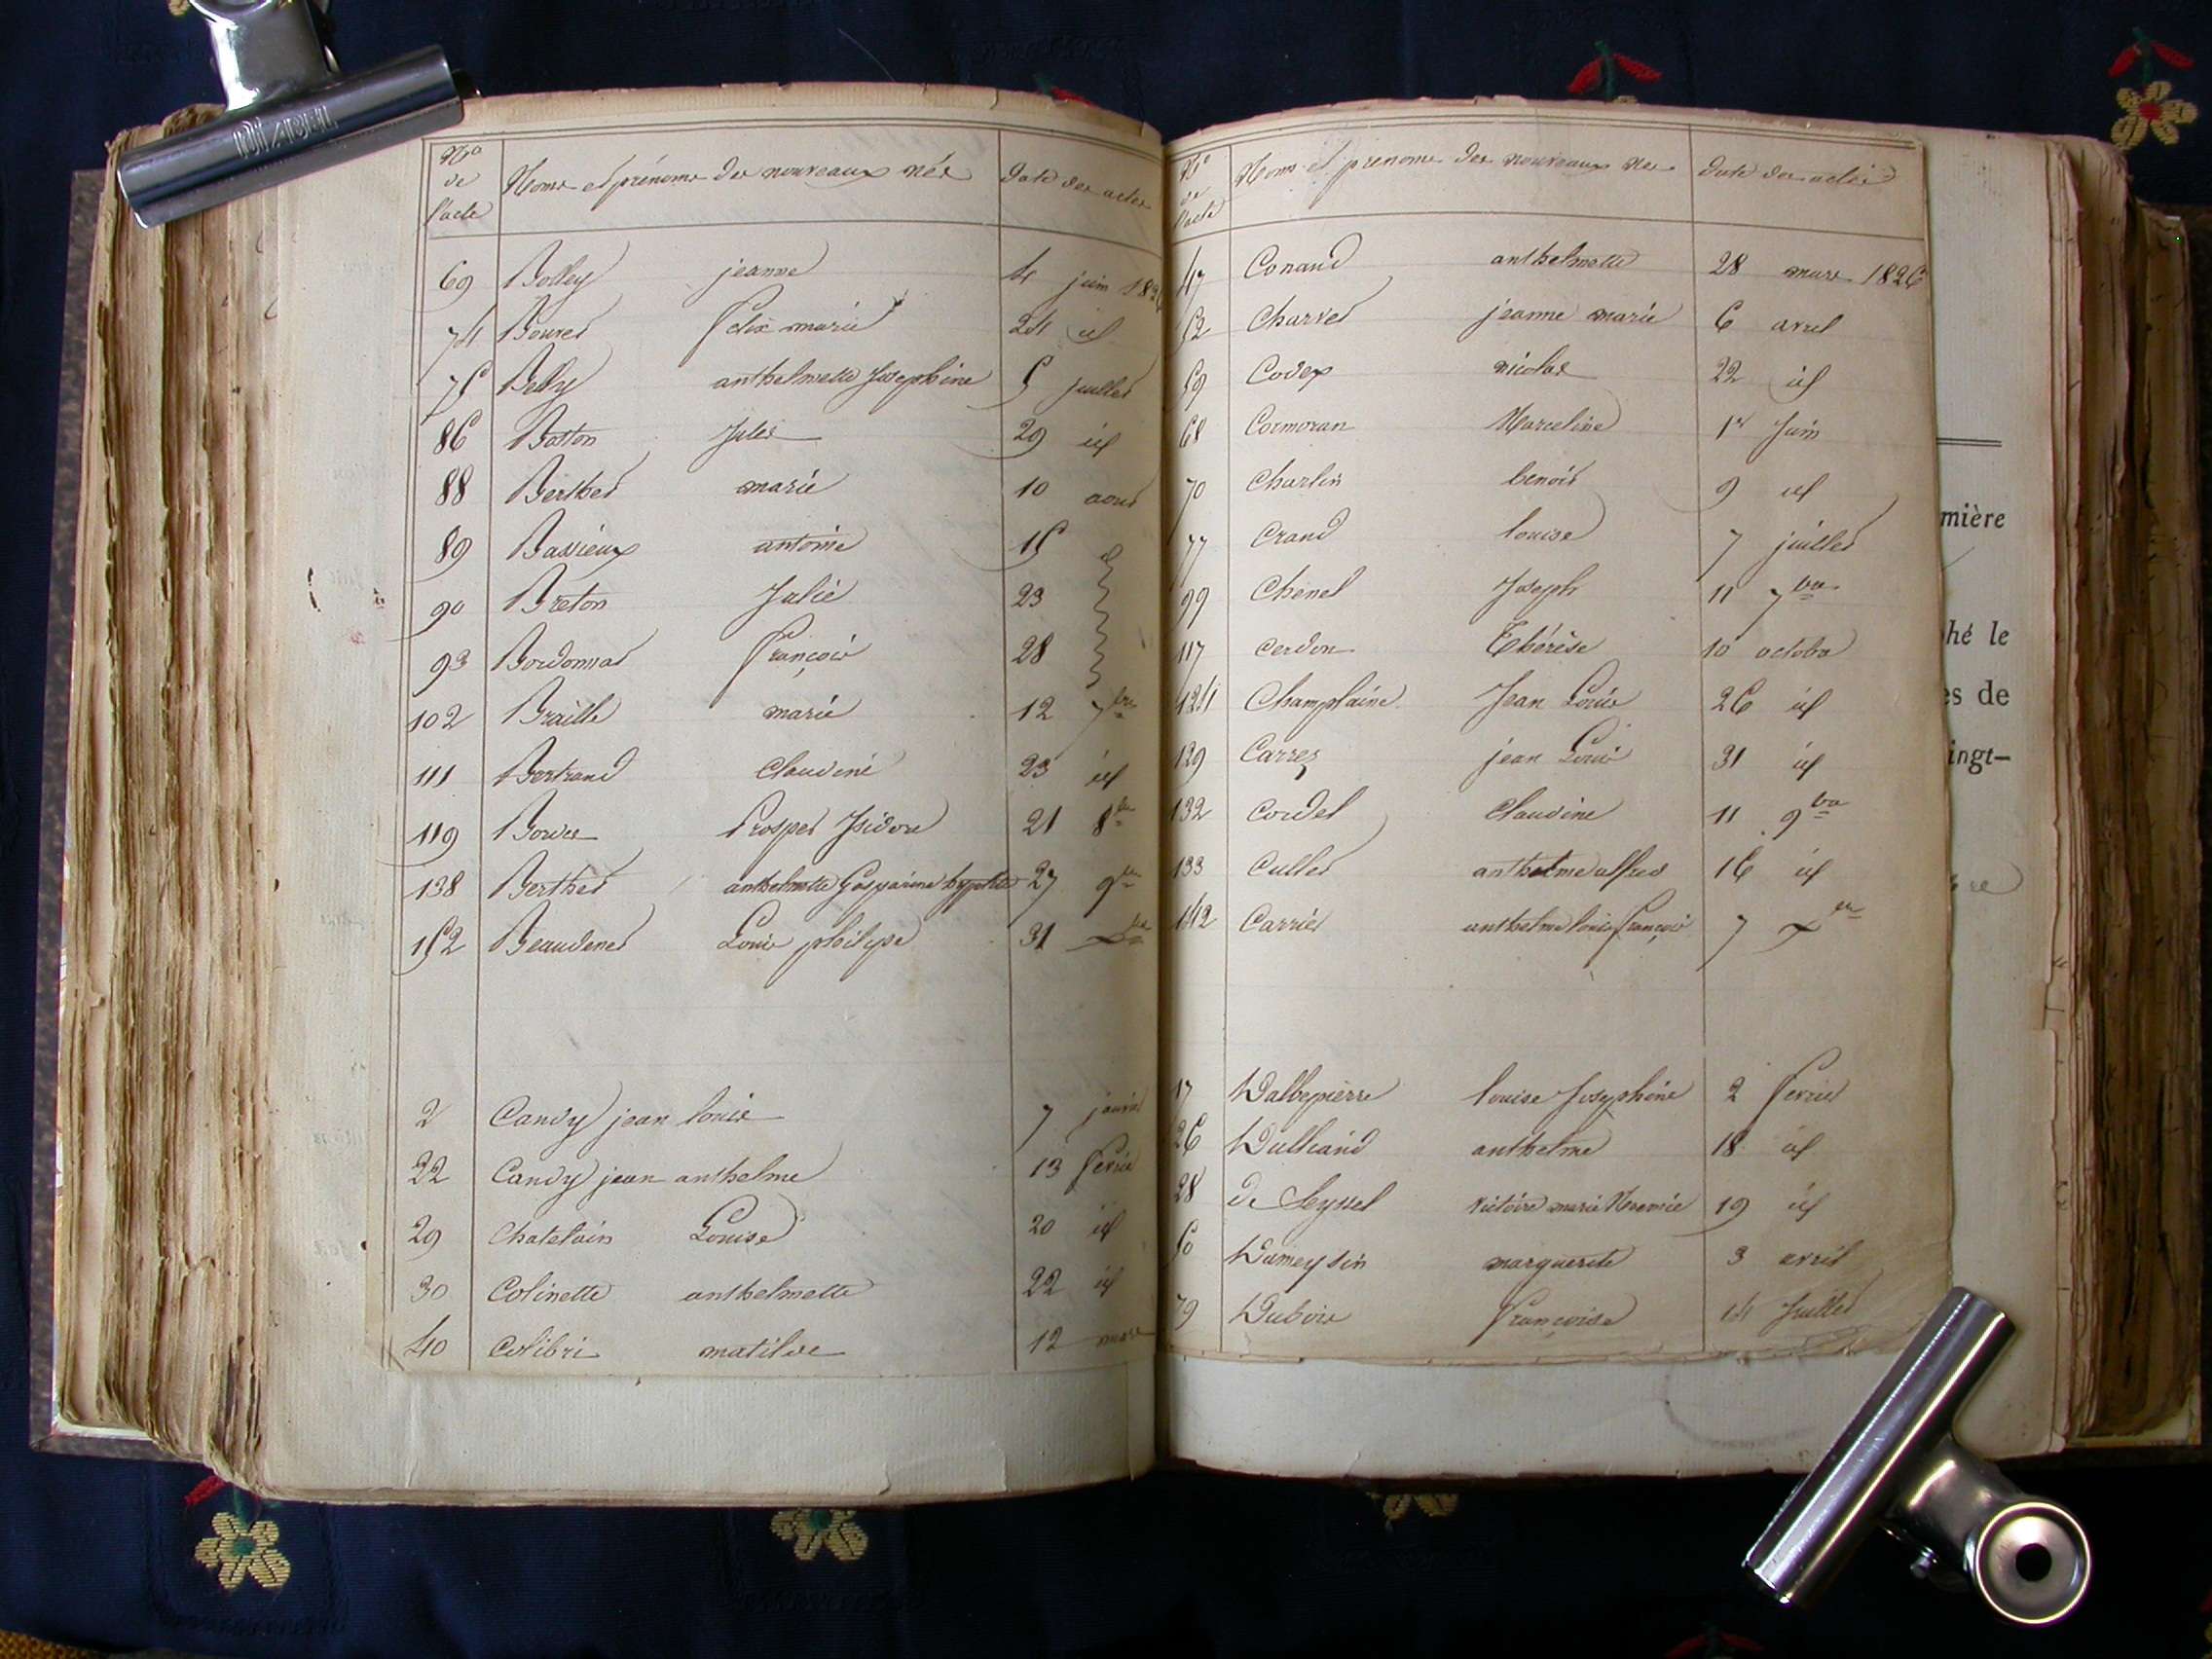 DIABEL
No de l'acte Noms et prénoms des nouveaux nés Date des actes
69 Bolley jeanne 4 juin 1826
74 Bouvet felix marie 24 id
75 Belly anthelmette Josephine 5 juillet
86 Baston Jules 29 id
88 Berthet marie 10 aout
89 Bassieux antoine 15 id
90 Breton Julie 23
93 Bordonnat françois 28
102 Braille marie 12 7bre
111 Bertrand Claudine 23 id
119 Prosper Isidore 21 8bre
138 Berthet anthelmette Gasparine 27 9bre
152 Beaudenet Louis philipe 31 Xbre
2 Candy jean louis 7 janvier
22 Candy jean anthelme 13 fevrier
29 Chatelain Louise 20 id
30 Colinette anthelmette 22 id
40 Colibri matilde 12 mars
No de l'acte Noms et prenoms des nouveaux nes Date des actes
47 Conand anthelmette 28 mars 1826
52 Charvet jeanne marie 6 avril
59 Codex nicolas 22 id
68 Cormoran Marceline 1er Juin
70 Charlin benoit 9 id
77 Crand louise 7 juillet
99 Chenel Joseph 11 7bre
117 Cerdon Thérèse 10 octobre
124 Champlaine Jean Louis 26 id
129 Carrez jean Louis 31 id
132 Cordel Claudine 11 9bre
133 Cullet anthelme alfred 16 id
142 Carrier anthelme louis françois 7 Xbre
17 Dalbepierre louise Josephine 2 fevrier
26 Dulliand anthelme 18 id
28 de Seyssel victoire marie 19 id
50 Dameysin marguerite 3 avril
79 Dubois françoise 14 Juillet
mière
hé le
es de
ingt-